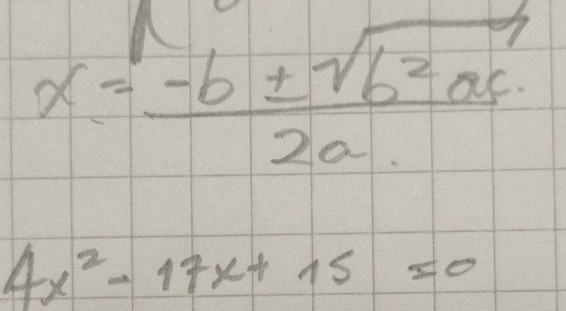 x = -b ± √b² ac. / 2a.
4x² - 17x + 15 = 0